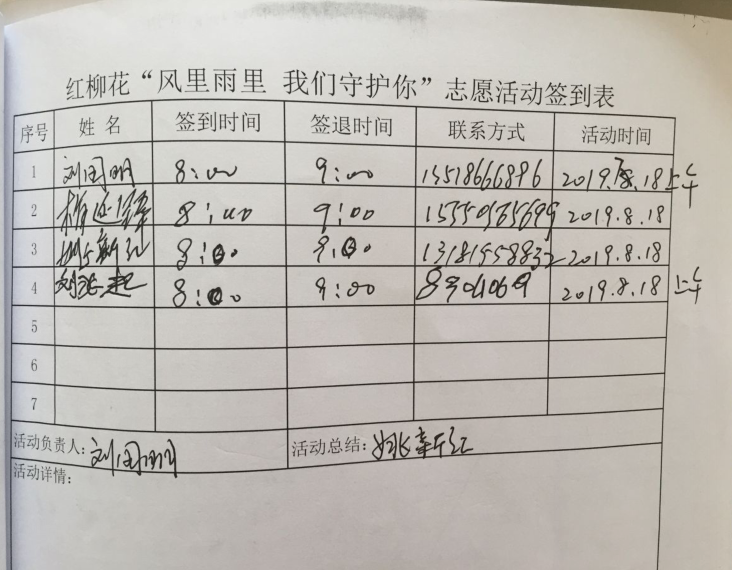 红柳花“风里雨里 我们守护你”志愿活动签到表
序号 姓名 签到时间 签退时间 联系方式 活动时间
1 刘国明 8:00 9:00 13518666896 2019.8.18 上午
2 8:00 9:00 2019.8.18
3 8:00 9:00 13181958832 2019.8.18
4 8:00 9:00 8304069 2019.8.18 上午
5
6
7
活动负责人: 刘国明 活动总结: 姚新红
活动详情: